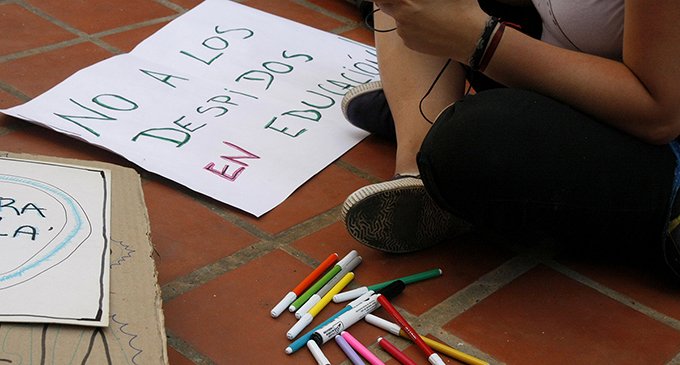 NO A LOS
DESPIDOS
EN EDUCACIÓN
RA
LA'